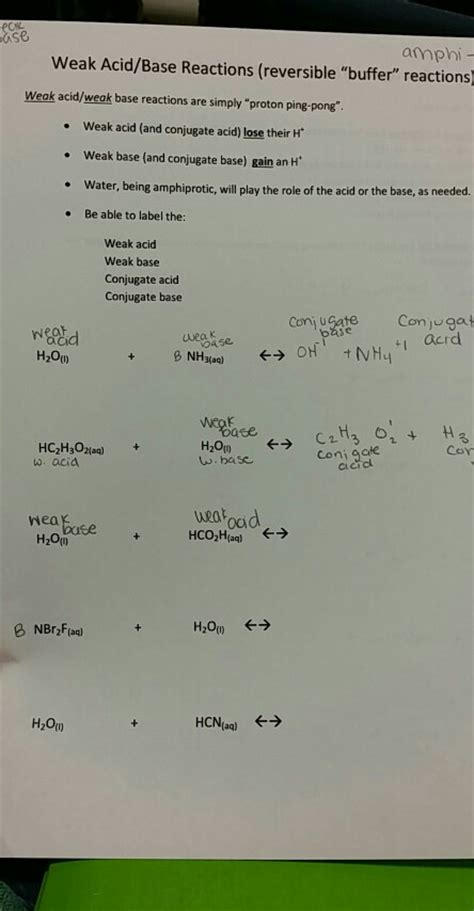 base
amphi -
Weak Acid/Base Reactions (reversible "buffer" reactions)
Weak acid/weak base reactions are simply "proton ping-pong".
• Weak acid (and conjugate acid) lose their H⁺
• Weak base (and conjugate base) gain an H⁺
• Water, being amphiprotic, will play the role of the acid or the base, as needed.
• Be able to label the:
Weak acid
Weak base
Conjugate acid
Conjugate base
weak acid weak base conjugate base Conjugat acid
H₂O(l) + B NH₃(aq) ↔ OH⁻¹ + NH₄⁺¹
weak base
HC₂H₃O₂(aq) + H₂O(l) ↔ C₂H₃O₂⁻¹ + H₃
w. acid w. base conjgate acid Con
weak base weak acid
H₂O(l) + HCO₂H(aq) ↔
B NBr₂F(aq) + H₂O(l) ↔
H₂O(l) + HCN(aq) ↔